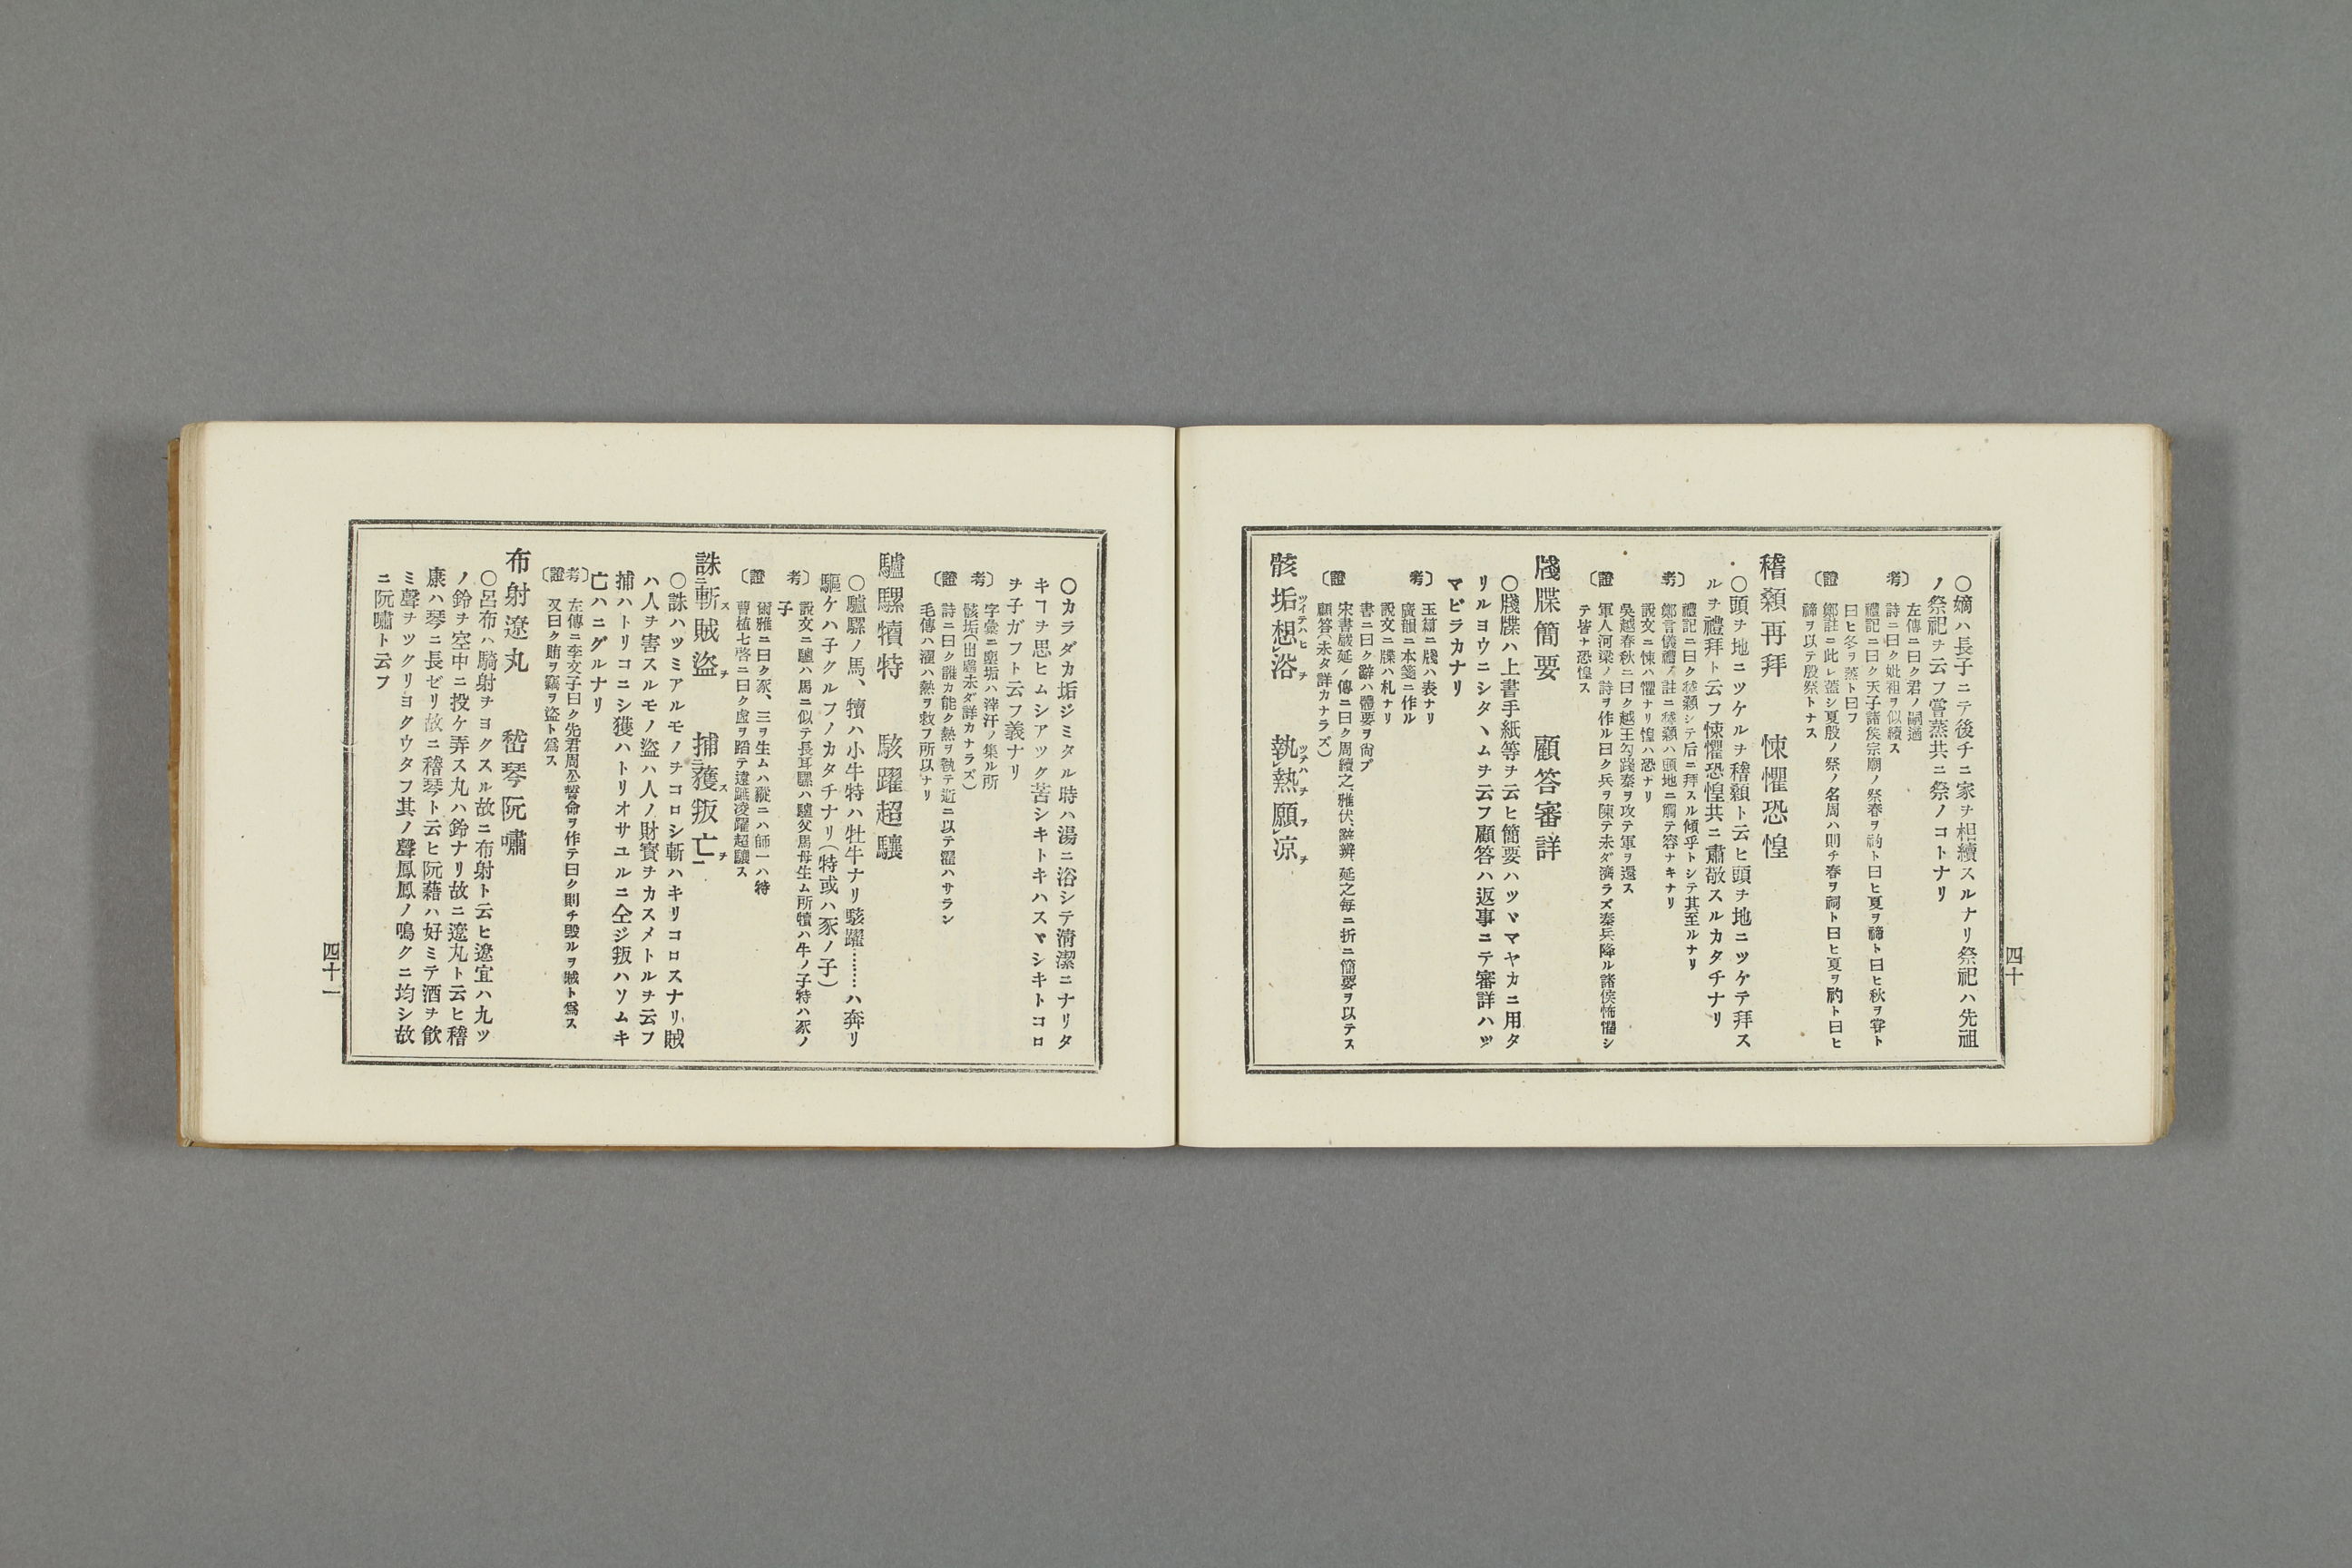 〇嫡ハ長子ニテ後チニ家ヲ相續スルナリ祭祀ハ先祖
ノ祭祀ヲ云フ嘗蒸共ニ祭ノコトナリ
〔考證
左傳ニ曰ク君ノ嗣適
詩ニ曰ク妣祖ヲ似續ス
禮記ニ曰ク天子諸侯宗廟ノ祭春ヲ礿ト曰ヒ夏ヲ禘ト曰ヒ秋ヲ嘗ト
曰ヒ冬ヲ蒸ト曰フ
鄭註ニ此レ蓋シ夏殷ノ祭ノ名周ハ則チ春ヲ祠ト曰ヒ夏ヲ礿ト曰ヒ
禘ヲ以テ殷祭トナス
稽顙再拜 悚懼恐惶
〇頭ヲ地ニツケルヲ稽顙ト云ヒ頭ヲ地ニツケテ拜ス
ルヲ禮拜ト云フ悚懼恐惶共ニ肅敬スルカタチナリ
〔考證
禮記ニ曰ク稽顙シテ后ニ拜スル傾乎トシテ其至ルナリ
鄭言儀禮ノ註ニ稽顙ハ頭地ニ觸テ容ナキナリ
説文ニ悚ハ懼ナリ惶ハ恐ナリ
吳越春秋ニ曰ク越王勾踐秦ヲ攻テ軍ヲ還ス
軍人河梁ノ詩ヲ作ル曰ク兵ヲ陳テ未ダ濟ラズ秦兵降ル諸侯怖懼シ
テ皆ナ恐惶ス
牋牒簡要 顧答審詳
〇牋牒ハ上書手紙等ヲ云ヒ簡要ハツヾマヤカニ用タ
リルヨウニシタヽムヲ云フ顧答ハ返事ニテ審詳ハツ
マビラカナリ
〔考證
玉篇ニ牋ハ表ナリ
廣韻ニ本箋ニ作ル
説文ニ牒ハ札ナリ
書ニ曰ク辭ハ體要ヲ尙ブ
宋書嚴延ノ傳ニ曰ク周續之雅伏、辭辨、延之每ニ折ニ簡要ヲ以テス
顧答(未タ詳カナラズ)
骸垢想浴 執熱願凉
四十
〇カラダカ垢ジミタル時ハ湯ニ浴シテ清潔ニナリタ
キヿヲ思ヒムシアツク苦シキトキハスヾシキトコロ
ヲ子ガフト云フ義ナリ
〔考證
字彙ニ塵垢ハ滓汗ノ集ル所
骸垢(出處未ダ詳カナラズ)
詩ニ曰ク誰カ能ク熱ヲ執テ逝ニ以テ濯ハサラン
毛傳ハ濯ハ熱ヲ救フ所以ナリ
驢騾犢特 駭躍超驤
〇驢騾ノ馬、犢ハ小牛特ハ牡牛ナリ駭躍……ハ奔リ
驅ケハ子クルフノカタチナリ(特或ハ豕ノ子)
〔考證
説文ニ驢ハ馬ニ似テ長耳騾ハ驢父馬母生ム所犢ハ牛ノ子特ハ豕ノ
子
爾雅ニ曰ク豕、三ヲ生ムハ豵ニハ師一ハ特
曹植七啓ニ曰ク虛ヲ蹈テ遠蹠凌躍超驤ス
誅斬賊盜 捕獲叛亡
〇誅ハツミアルモノヲコロシ斬ハキリコロスナリ賊
ハ人ヲ害スルモノ盜ハ人ノ財寳ヲカスメトルヲ云フ
捕ハトリコニシ獲ハトリオサユルニ仝ジ叛ハソムキ
亡ハニグルナリ
〔考證〕
左傳ニ李文子曰ク先君周公誓命ヲ作テ曰ク則チ毀ルヲ賊ト爲ス
又曰ク賄ヲ竊ヲ盜ト爲ス
布射遼丸 嵆琴阮嘯
〇呂布ハ騎射ヲヨクスル故ニ布射ト云ヒ遼宜ハ九ツ
ノ鈴ヲ空中ニ投ケ弄ス丸ハ鈴ナリ故ニ遼丸ト云ヒ稽
康ハ琴ニ長ゼリ故ニ稽琴ト云ヒ阮藉ハ好ミテ酒ヲ飮
ミ聲ヲツクリヨクウタフ其ノ聲鳳鳳ノ鳴クニ均シ故
ニ阮嘯ト云フ
四十一